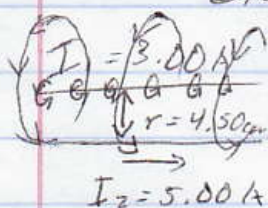 I = 3.00 A
r = 4.50 cm
I₂ = 5.00 A